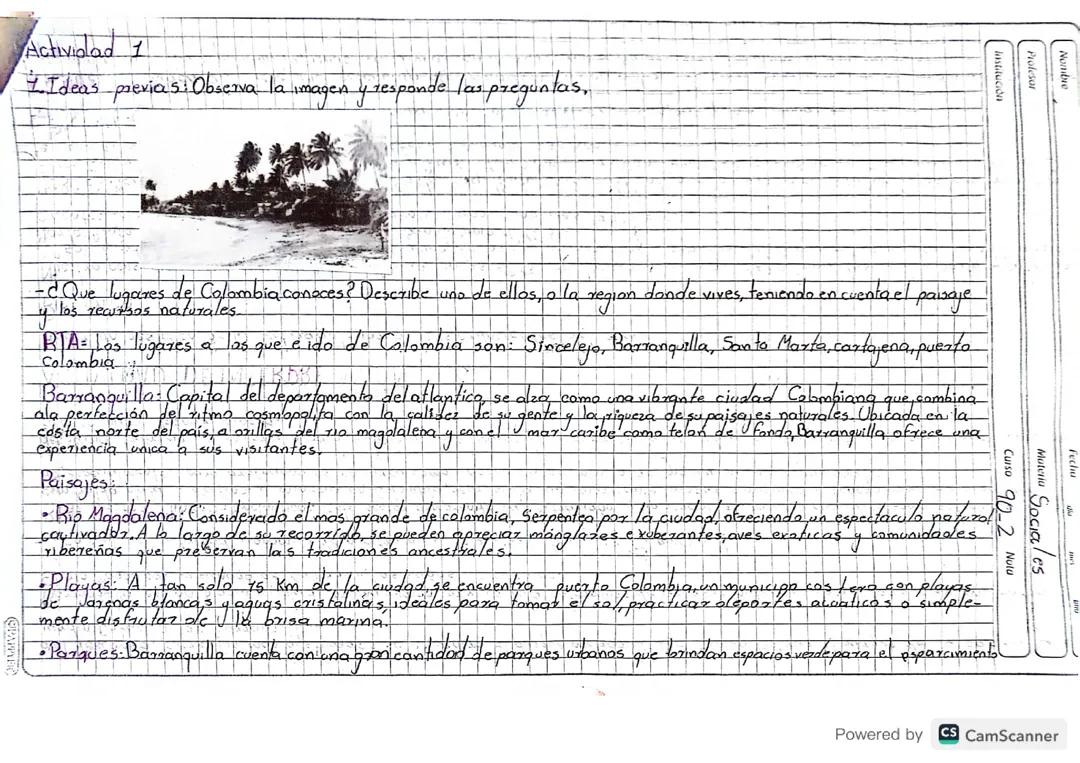 Actividad 1
1. Ideas previas: Observa la imagen y responde las preguntas.
- ¿Que lugares de Colombia conoces? Describe uno de ellos, o la region donde vives, teniendo en cuenta el paisaje
y los recursos naturales.
RTA= Los lugares a los que e ido de Colombia son: Sincelejo, Barranquilla, Santa Marta, cartajena, puerto
Colombia.
Barranquilla: Capital del departamento del atlantico, se alza como una vibrante ciudad Colombiana que, combina
a la perfección del ritmo cosmopolita con la calidez de su gente y la riqueza de su paisajes naturales. Ubicada en la
costa norte del pais, a orillas del rio magdalena y con el mar caribe como telan de fondo, Barranquilla ofrece una
experiencia unica a sus visitantes.
Paisajes:
• Rio Magdalena: Considerado el mas grande de colombia, Serpentea por la ciudad, ofreciendo un espectaculo natural
cautivador. A lo largo de su recorrido, se pueden apreciar manglares exuberantes, aves exoticas y comunidades
ribereñas que preservan las tradiciones ancestrales.
• Playas: A tan solo 15 Km de la ciudad, se encuentra puerto Colombia, un municipo costero con playas
de arenas blancas y aguas cristalinas, ideales para tomar el sol, practicar deportes acuaticos o simple-
mente disfrutar de la brisa marina.
• Parques: Barranquilla cuenta con una gran cantidad de parques urbanos que brindan espacios verde para el esparcimiento
Nombre
Profesor
Institución
Fecha día mes año
Materia Sociales
Curso 90-2 Nota
Powered by CS CamScanner